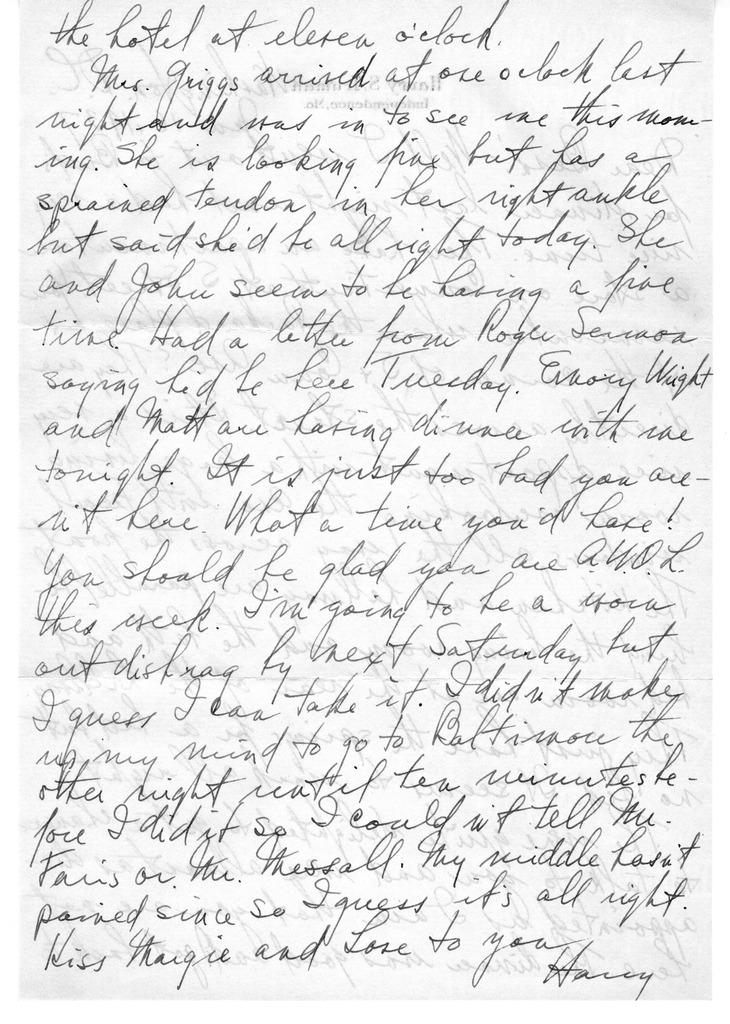 the hotel at eleven o'clock.
Mrs. Griggs arrived at one oclock last
night and was in to see me this morn-
ing. She is looking fine but has a
sprained tendon in her right ankle
but said she'd be all right today. She
and John seem to be having a fine
time. Had a letter from Roger Sermon
saying he'd be here Tuesday. Emory Wright
and Matt are having dinner with me
tonight. It is just too bad you are-
n't here. What a time you'd have!
You should be glad you are A.W.O.L.
this week. I'm going to be a worn
out dishrag by next Saturday but
I guess I can take it. I didn't make
up my mind to go to Baltimore the
other night until ten minutes be-
fore I did it so I could n't tell Mr.
Faris or Mr. Messall. My middle hasn't
pained since so I guess it's all right.
Kiss Margie and Love to you
Harry
Harry S. Truman
Independence, Mo.